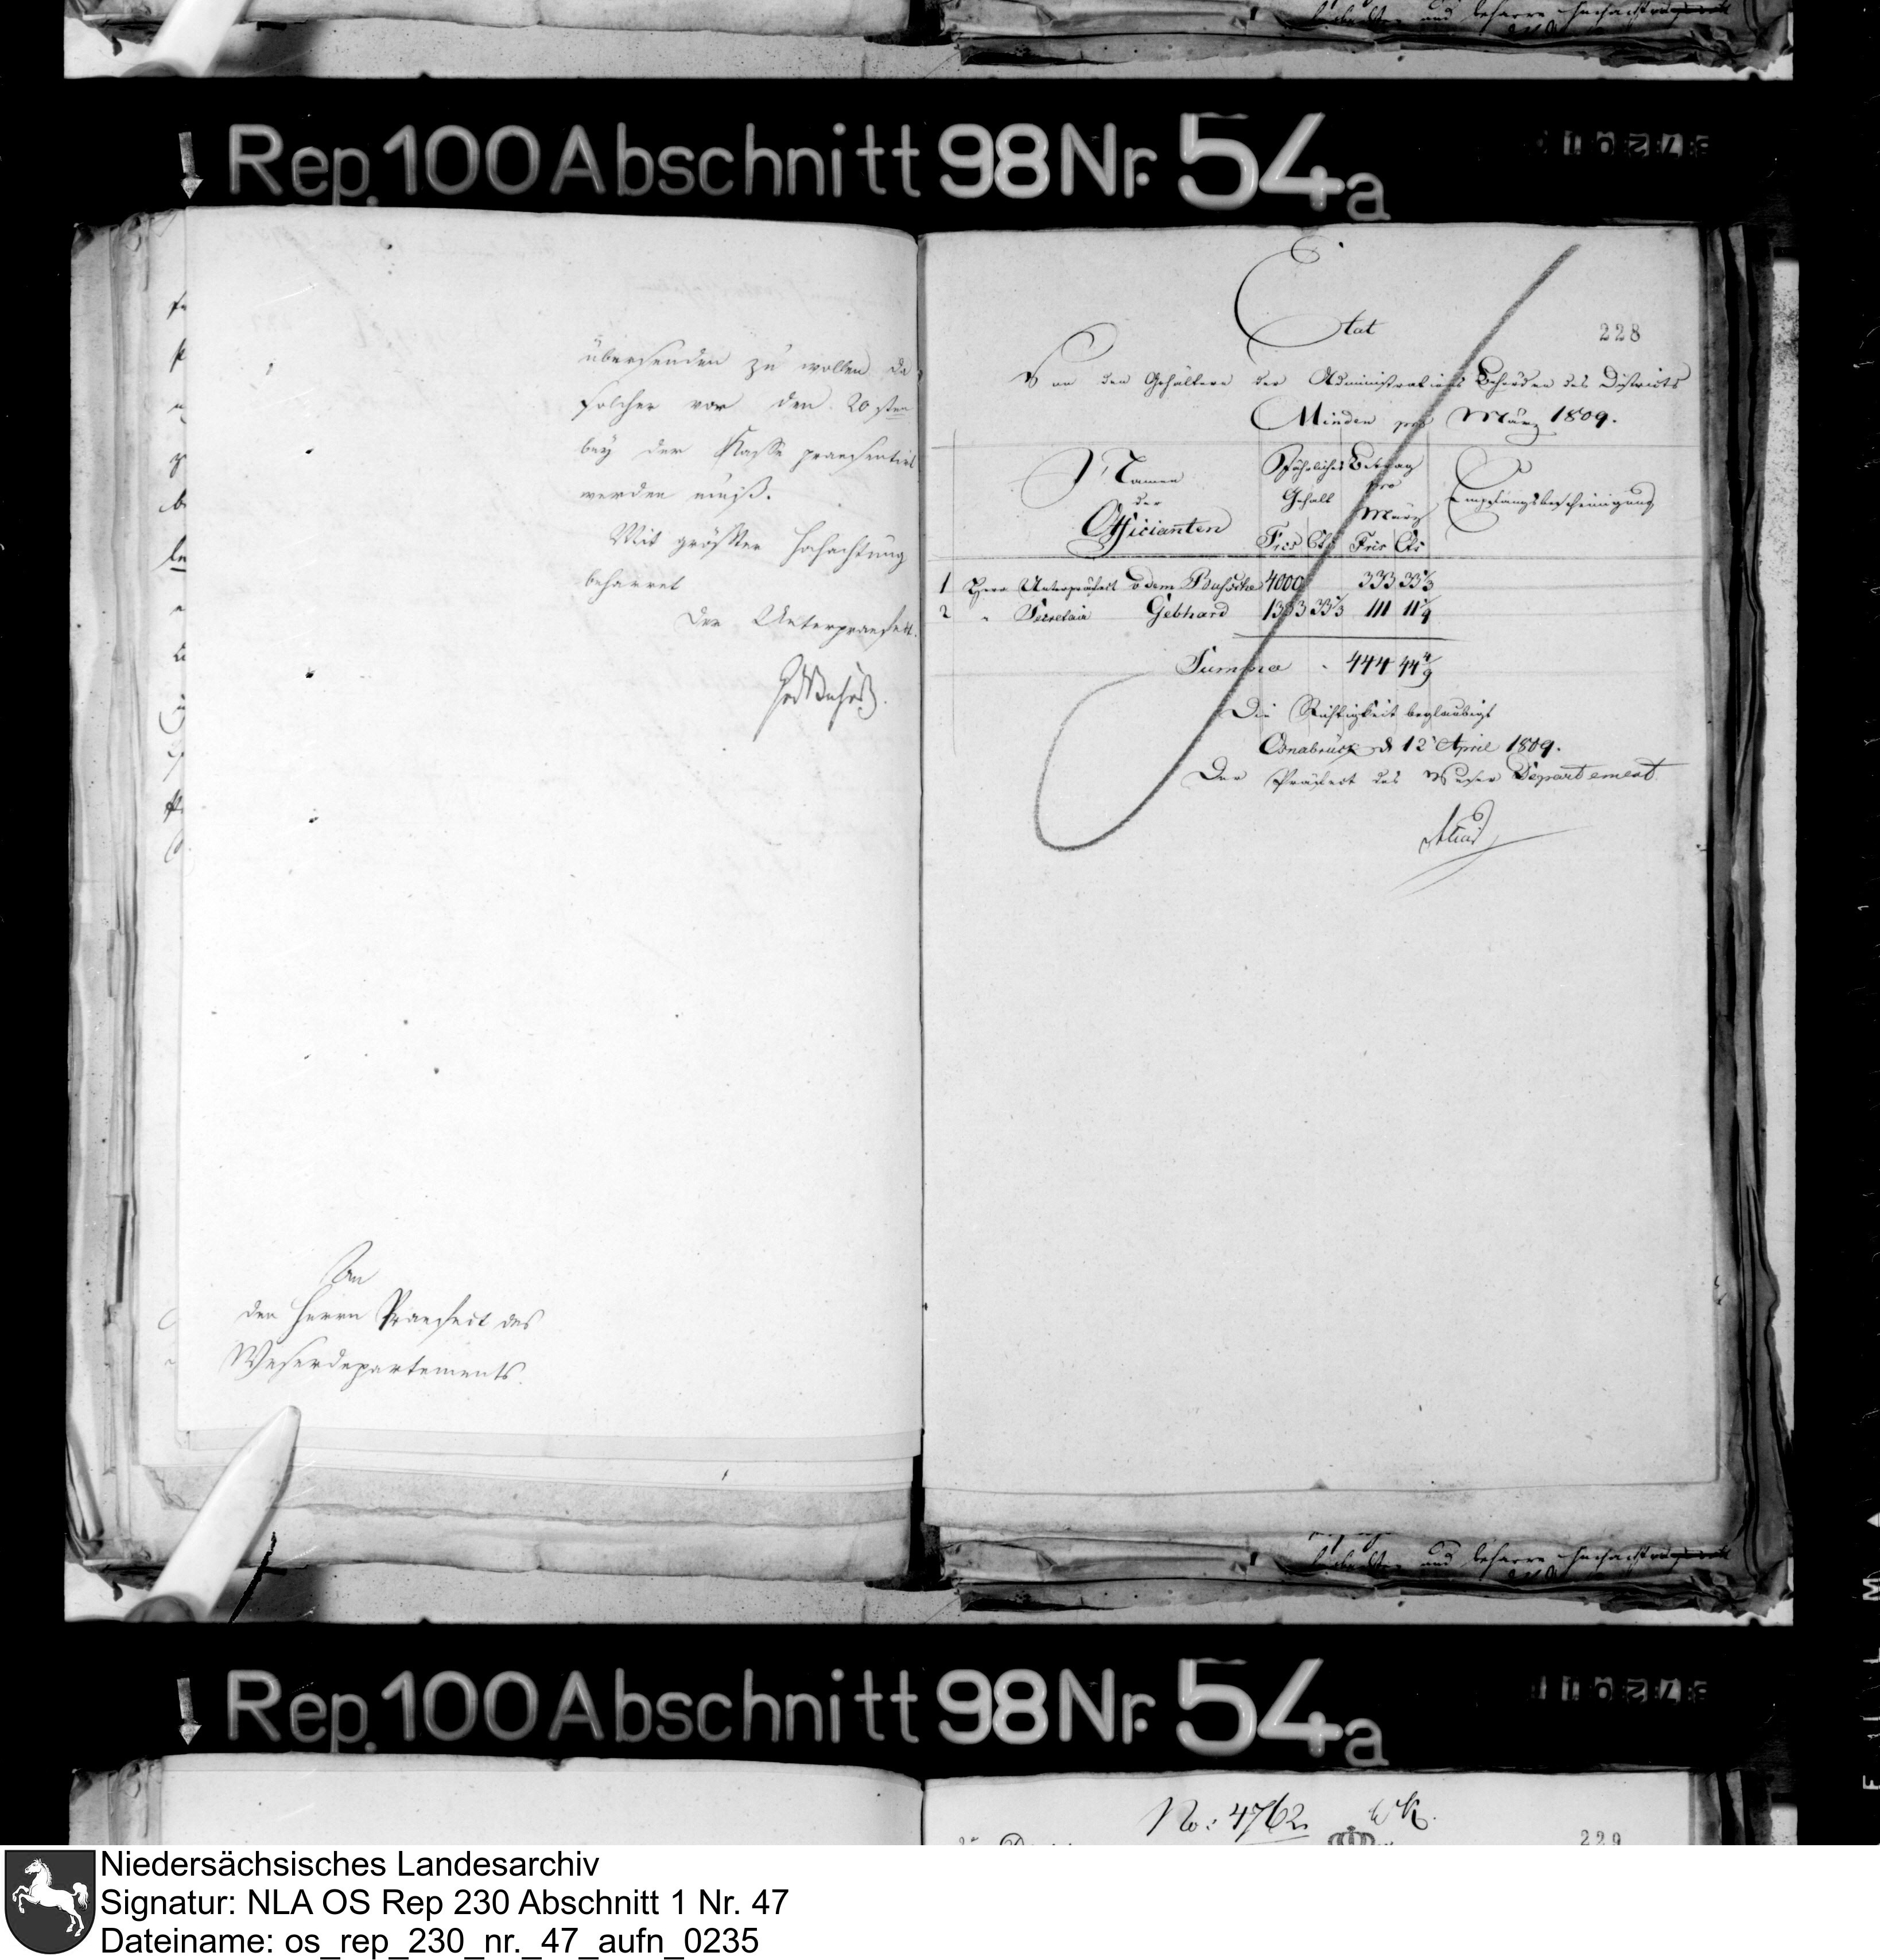 Rep. 100 Abschnitt 98 Nr. 54a
übersenden zu wollen da
solcher vor den 20sten
bey der Kasse praesentirt
werden muß.
Mit größter Hochachtung
beharret
Der Unterpraefect.
An
den Herrn Praefect des
Weserdepartements.
228
Etat
Von den Gehältern der Administrations Behörden des Districts
Minden pro März 1809.
Namen
der
Officianten
Jährliches
Gehalt
Frcs Cts
Betrag
pro
März
Frcs Cts
Empfangsbescheinigung
1 Herr Unterpräfect v dem Bussche 4000 333 33 1/3
2 " Secretair Gebhard 1333 33 1/3 111 11 1/9
Summa . 444 44 4/9
Die Richtigkeit beglaubigt
Osnabrück d 12 April 1809.
Der Präfect des Weser Departement
und beharre
Rep. 100 Abschnitt 98 Nr. 54a
No: 4762
229
Niedersächsisches Landesarchiv
Signatur: NLA OS Rep 230 Abschnitt 1 Nr. 47
Dateiname: os_rep_230_nr._47_aufn_0235